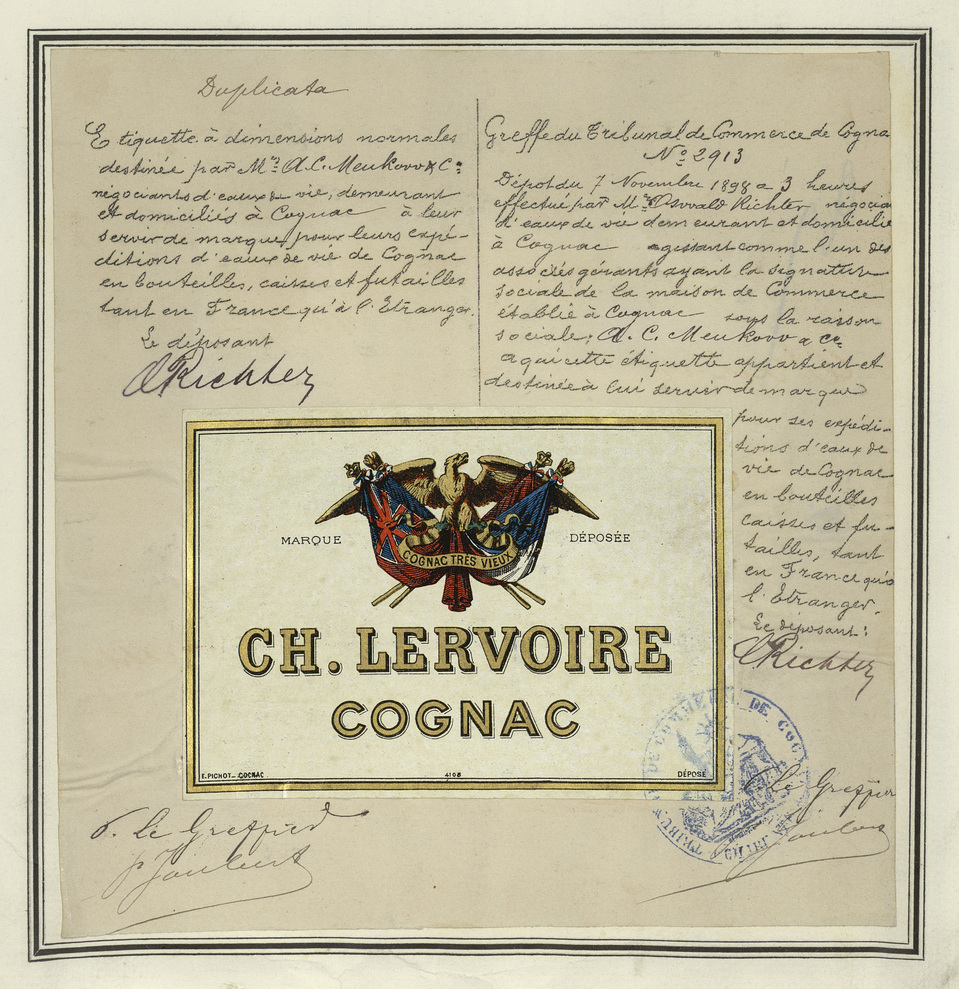 Duplicata
Etiquette à dimensions normales
destinée par Mrs A.C. Meukow & Co
négociants d'eaux de vie, demeurant
et domiciliés à Cognac à leur
servir de marque pour leurs expé-
ditions d'eaux de vie de Cognac
en bouteilles, caisses et futailles
tant en France qu'à l'Etranger.
Le déposant
Richter
Greffe du Tribunal de Commerce de Cogna
No 2913
Dépot du 7 Novembre 1898 a 3 heures
effectué par Mr Osvald Richter négocia
d'eaux de vie demeurant et domicilié
à Cognac agissant comme l'un des
associés gérants ayant la signature
sociale de la maison de Commerce
établie à Cognac sous la raison
sociale: A. C. Meukow & Co
a qui cette étiquette appartient et
destinée à lui servir de marque
pour ses expédi-
tions d'eaux de
vie de Cognac
en bouteilles
caisses et fu-
tailles, tant
en France qu'à
l'Etranger.
Le déposant:
Richter
MARQUE DÉPOSÉE
COGNAC TRÈS VIEUX
CH. LERVOIRE
COGNAC
E. PICHOT _ COGNAC 4108 DÉPOSÉ
Le Greffier
Le Greffier
DE COMMERCE DE COGNAC
TRIBUNAL